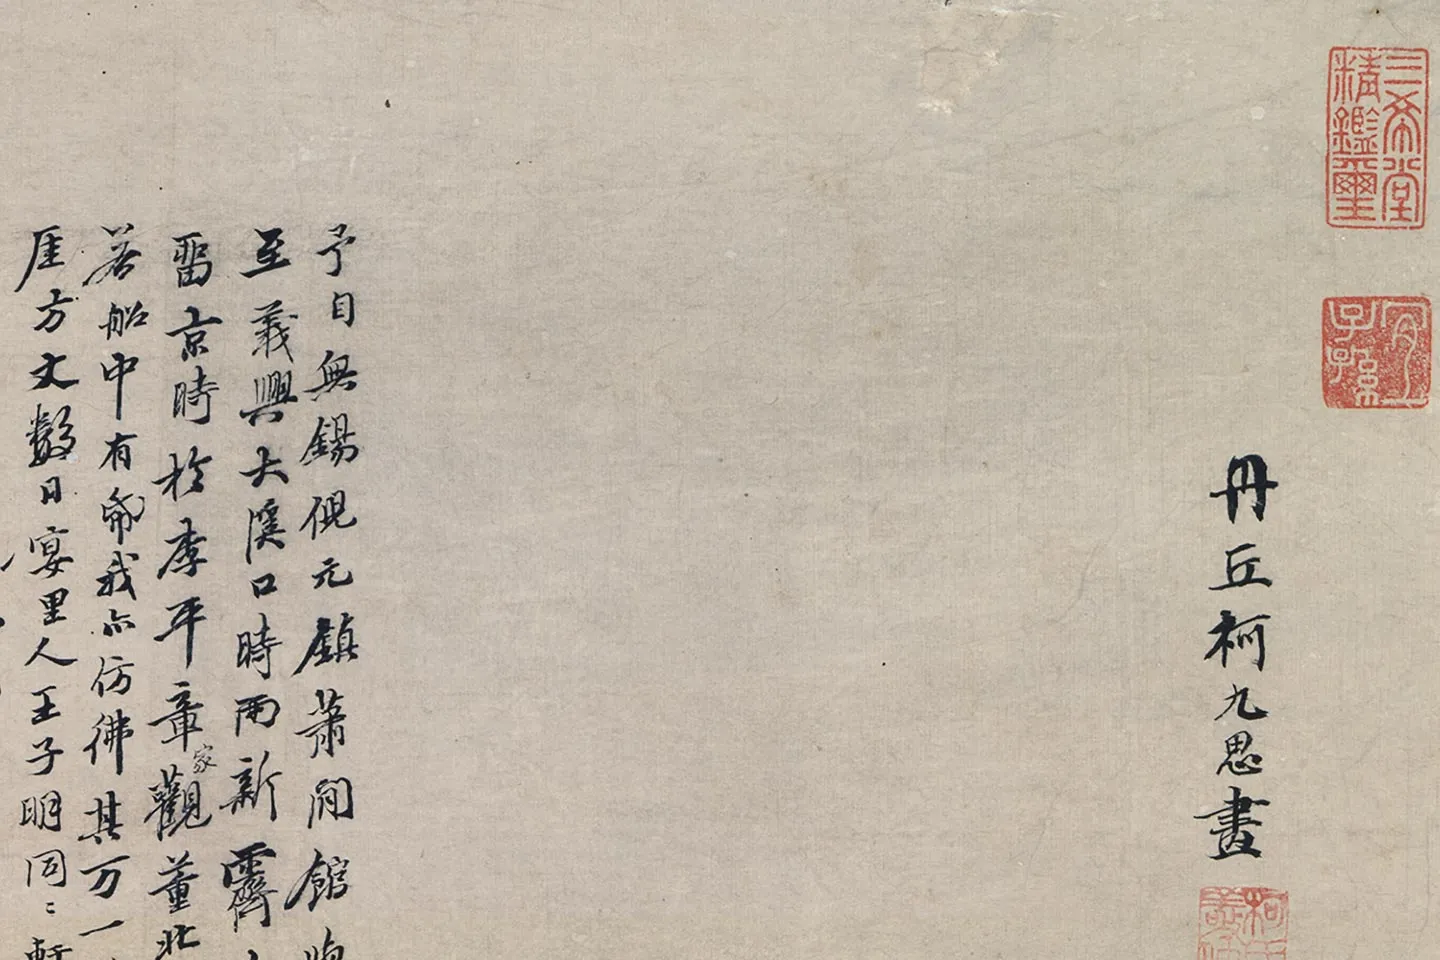 三希堂
精鑑璽
宜
子孫
丹丘柯九思畫
柯
予自無錫倪元鎮蕭閒館
至義興大溪口時雨新霽
留京時於李平章家觀董北
若船中有帋我亦仿佛其万一
厓方丈數日宴里人王子明同〻軒